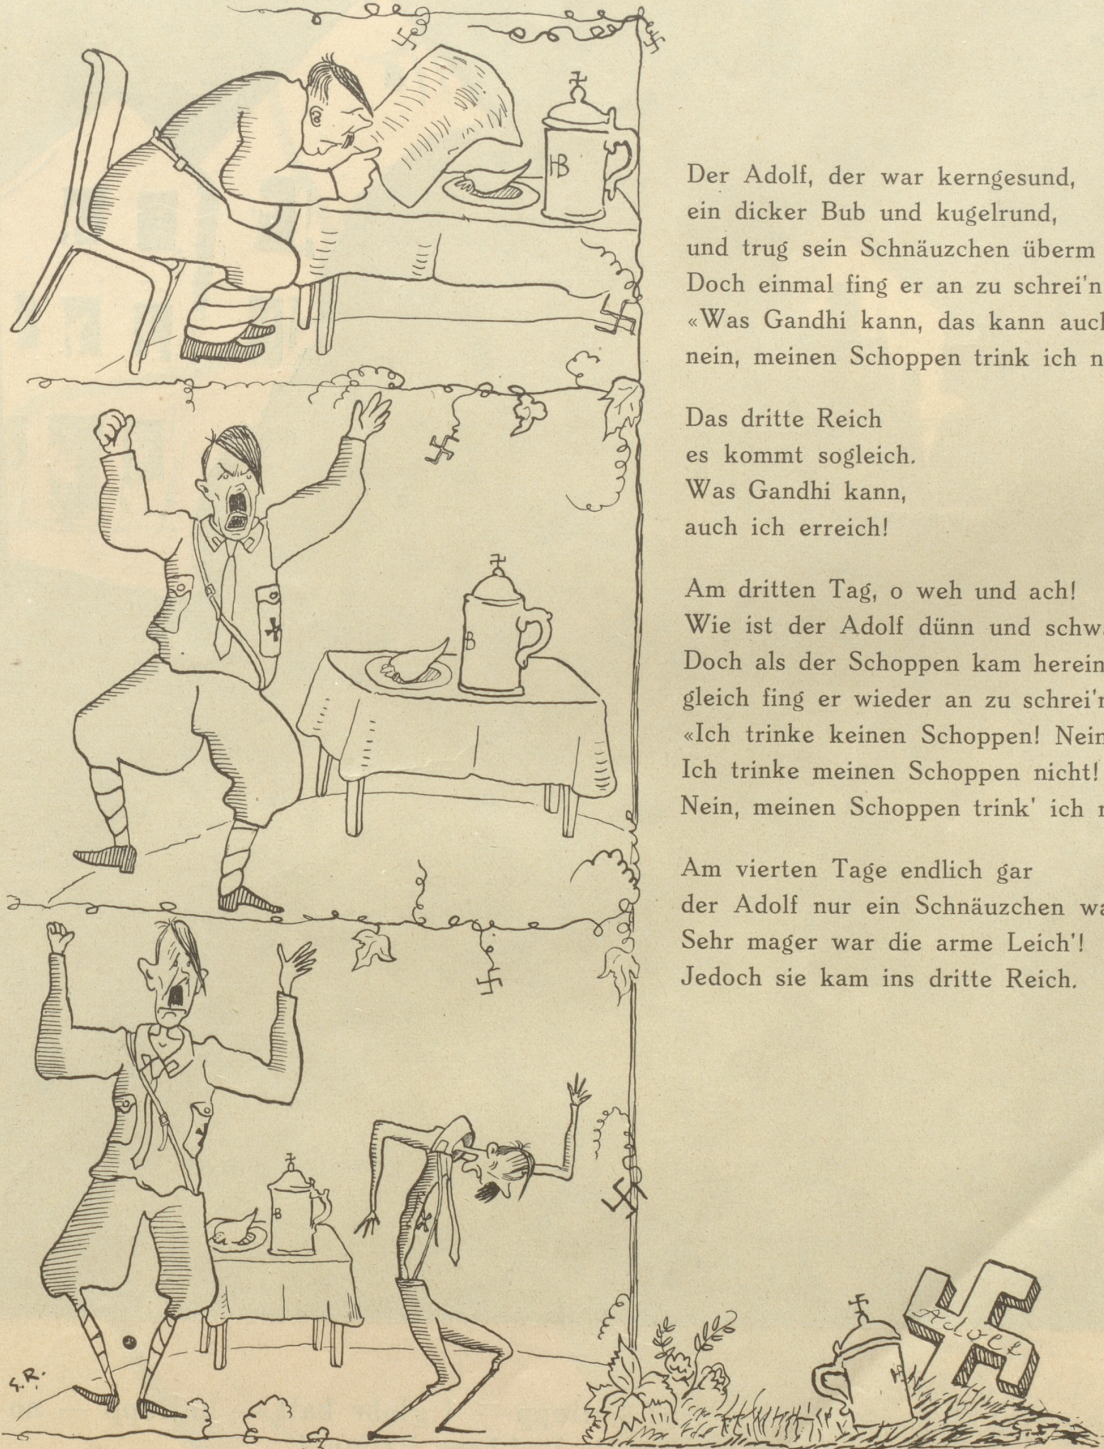 Der Adolf, der war kerngesund,
ein dicker Bub und kugelrund,
und trug sein Schnäuzchen überm
Doch einmal fing er an zu schrei'n
«Was Gandhi kann, das kann auch
nein, meinen Schoppen trink ich
Das dritte Reich
es kommt sogleich.
Was Gandhi kann,
auch ich erreich!
Am dritten Tag, o weh und ach!
Wie ist der Adolf dünn und
Doch als der Schoppen kam herein
gleich fing er wieder an zu schrei'n
«Ich trinke keinen Schoppen! Nein
Ich trinke meinen Schoppen nicht!
Nein, meinen Schoppen trink' ich
Am vierten Tage endlich gar
der Adolf nur ein Schnäuzchen
Sehr mager war die arme Leich'!
Jedoch sie kam ins dritte Reich.
HB
B
B
G.R.
Adolf